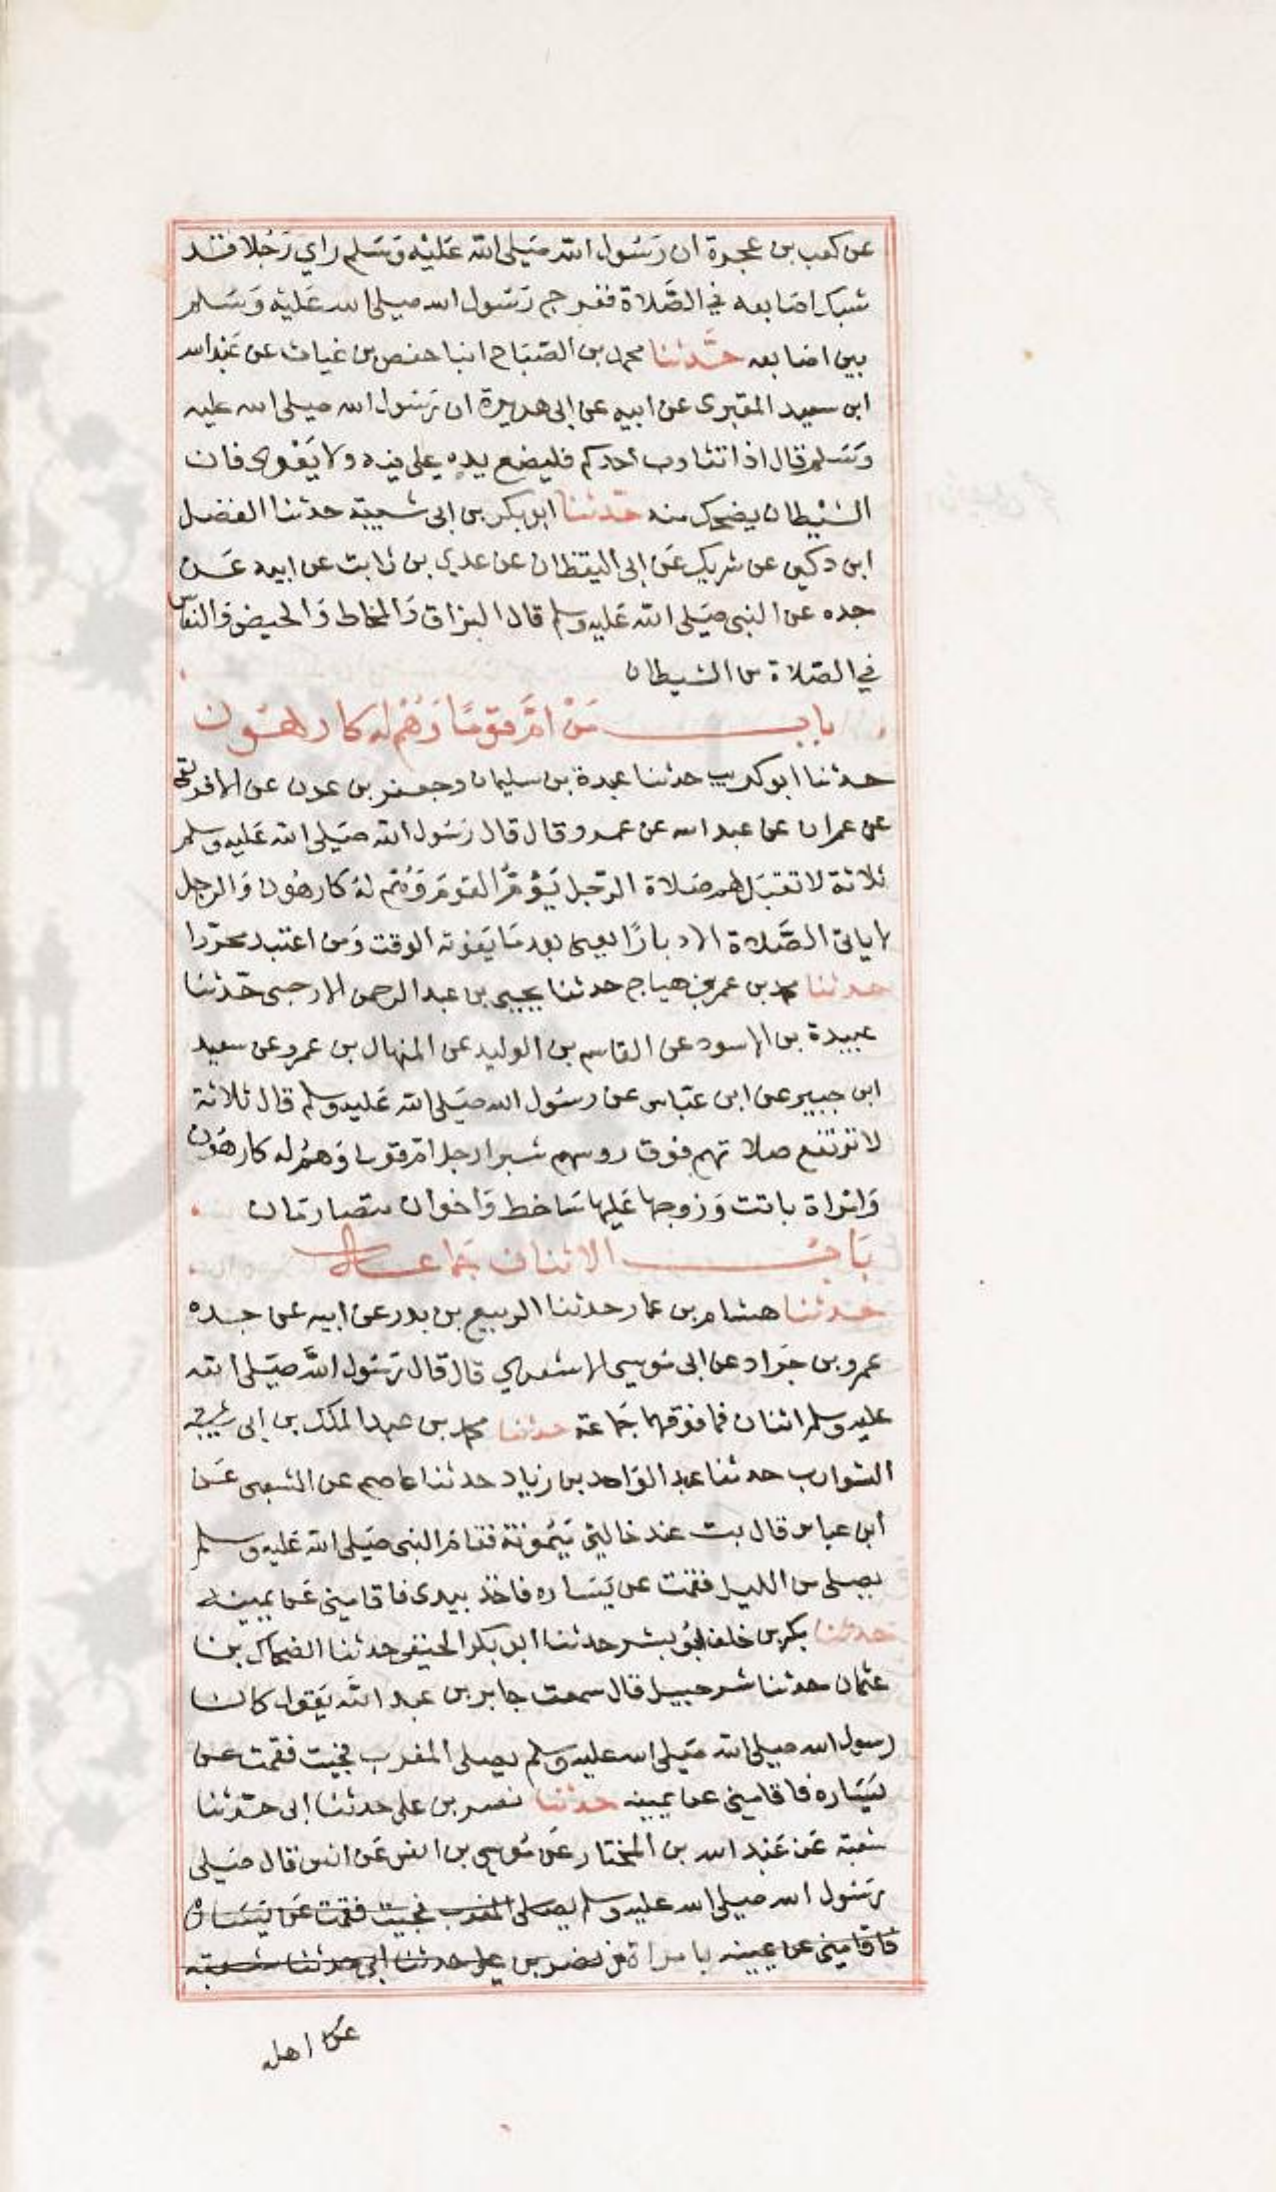 عن كعب بن عجرة ان رَسُول الله صَلى الله عَليْه وَسَلم راي رَجُلا قـد
شبك اصَابعه في الصَّلاة ففرج رَسُول الله صلى الله عَليْه وَسَلم
بين اصَابعه حَدَّثنا محمد بن الصّبَاح انبا حفص بن غياث عن عَبد الله
ابن سعيد المقبرى عن ابيه عن ابى هريرة ان رَسُول الله صلى الله عليه
وَسَلم قال اذا تثاوب احدكم فليضع يده على فيه ولا يَعْوى فان
الشيْطان يضحك منه حَدثنا ابو بكر بن ابى شيبة حدثنا الفضل
ابن دكين عن شريك عَن ابى اليقظان عن عدي بن ثابت عن ابيه عَـن
جده عن النبى صَلى الله عَليه وسلم قال البزاق وَالمخاط وَالحيض وَالنفاس
في الصَلاة من الشيطان
بابـــ مَنْ امَّ قومًا وَهُم له كارهـُون
حدثنا ابو كريب حدثنا عبدة بن سليمان وجعفر بن عون عن الافريقى
عن عمران عن عبد الله عن عمرو قال قال رَسُول الله صَلى الله عَليه وسلم
ثلاثة لا تقبَل لهم صَلاة الرّجل يَؤمُّ القومَ وَهُم لهُ كارهُون وَالرجل
لا ياتى الصَّلاة الا دبارًا يعنى بعد مَا يَفوته الوقت وَمن اعتبد محرّرا
حدثنا محمد بن عمر بن هياج حدثنا يحيى بن عبد الرحمن الارحبى حَدّثنا
عبيدة بن الاسود عن القاسم بن الوليد عن المنهال بن عمرو عن سعيد
ابن جبير عن ابن عبّاس عن رسُول الله صَلى الله عَليه وسلم قال ثلاثة
لا ترتفع صلاتهم فوق روسهم شبرا رجل امّ قوما وَهم له كارهُون
وَامراة باتت وَزوجها عَليها سَاخط وَاخوان متصارمَان
بَابُـــ الاثنان جَماعـة
حَدثنا هشام بن عمار حدثنا الربيع بن بدر عن ابيه عن جـده
عمرو بن جَراد عن ابى مُوسى الاشعري قال قال رَسُول اللَّه صَلى الله
عليه وسلم اثنان فما فوقهما جَماعة حدثنا محمد بن عبد الملك بن ابى شيبة
الشوارب حدثنا عبد الوَاحد بن زياد حدثنا عاصم عن الشعبى عَـن
ابن عباس قال بت عند خالتي مَيْمُونة فقامَ النبى صَلى الله عَليه وسلم
يصلى من الليل فقمت عن يَسَاره فاخذ بيدى فاقامنى عَن يمينه
حدثنا بكر بن خلف ابُو بشر حدثنا ابو بكر الحنفى حدثنا الضحاك بن
عثمان حدثنا شرحبيل قال سمعت جابر بن عبد الله يَقول كان
رسول الله صلى الله صَلى الله عليه وسلم يصلى المغرب فجيت فقمت عن
يَسَاره فاقامنى عن يمينه حدثنا نصر بن على حدثنا ابى حَدثنا
شعبة عَن عَبد الله بن المختار عَن مُوسى بن انس عَن انس قال صَلى
رَسُول الله صلى الله عليه وسلم يصلى المغرب فجيت فقمت عَن يَسَاره
فاقامنى عن يمينه بامراة من نصر بن على حدثنا ابى حدثنا شعبة
عن اهله